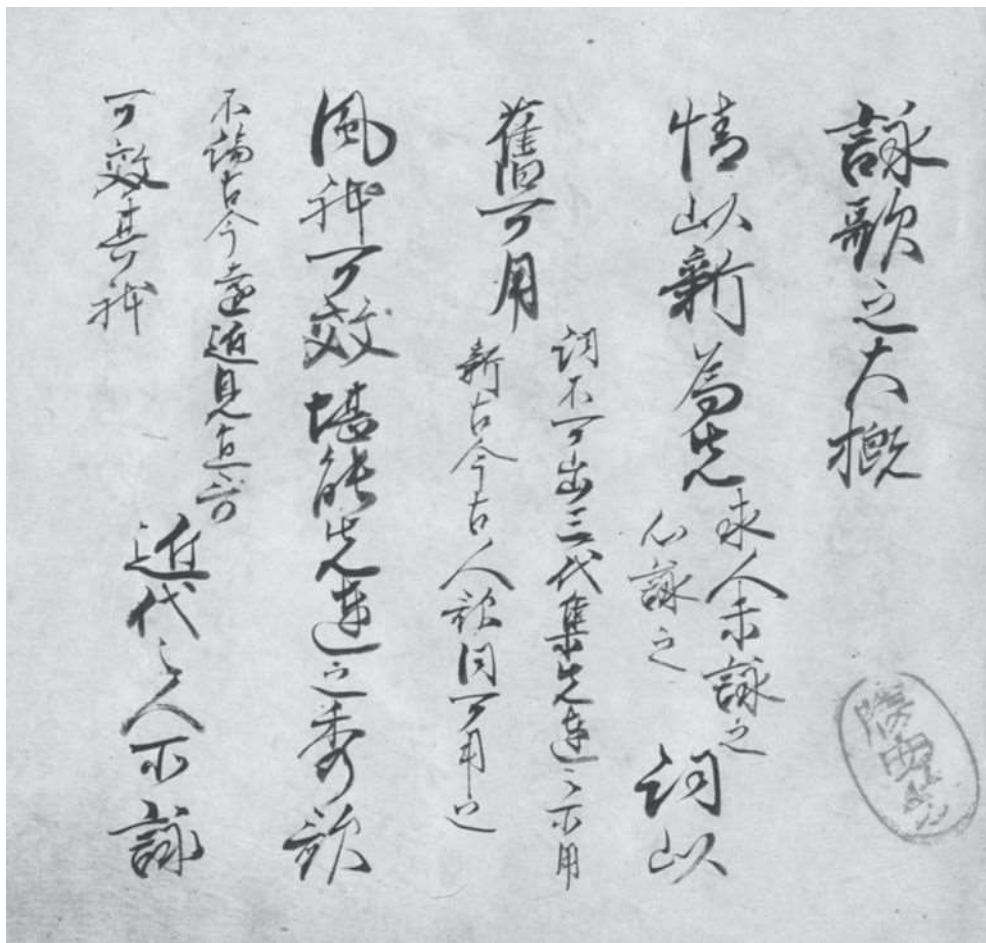 詠歌之大概
情以新為先
求人未詠之
心詠之
詞以
舊可用
詞不可出三代集先達之所用
新古今古人歌同可用之
風躰可效堪能先達之秀歌
不論古今遠近見宜哥
可效其躰
近代之人所詠